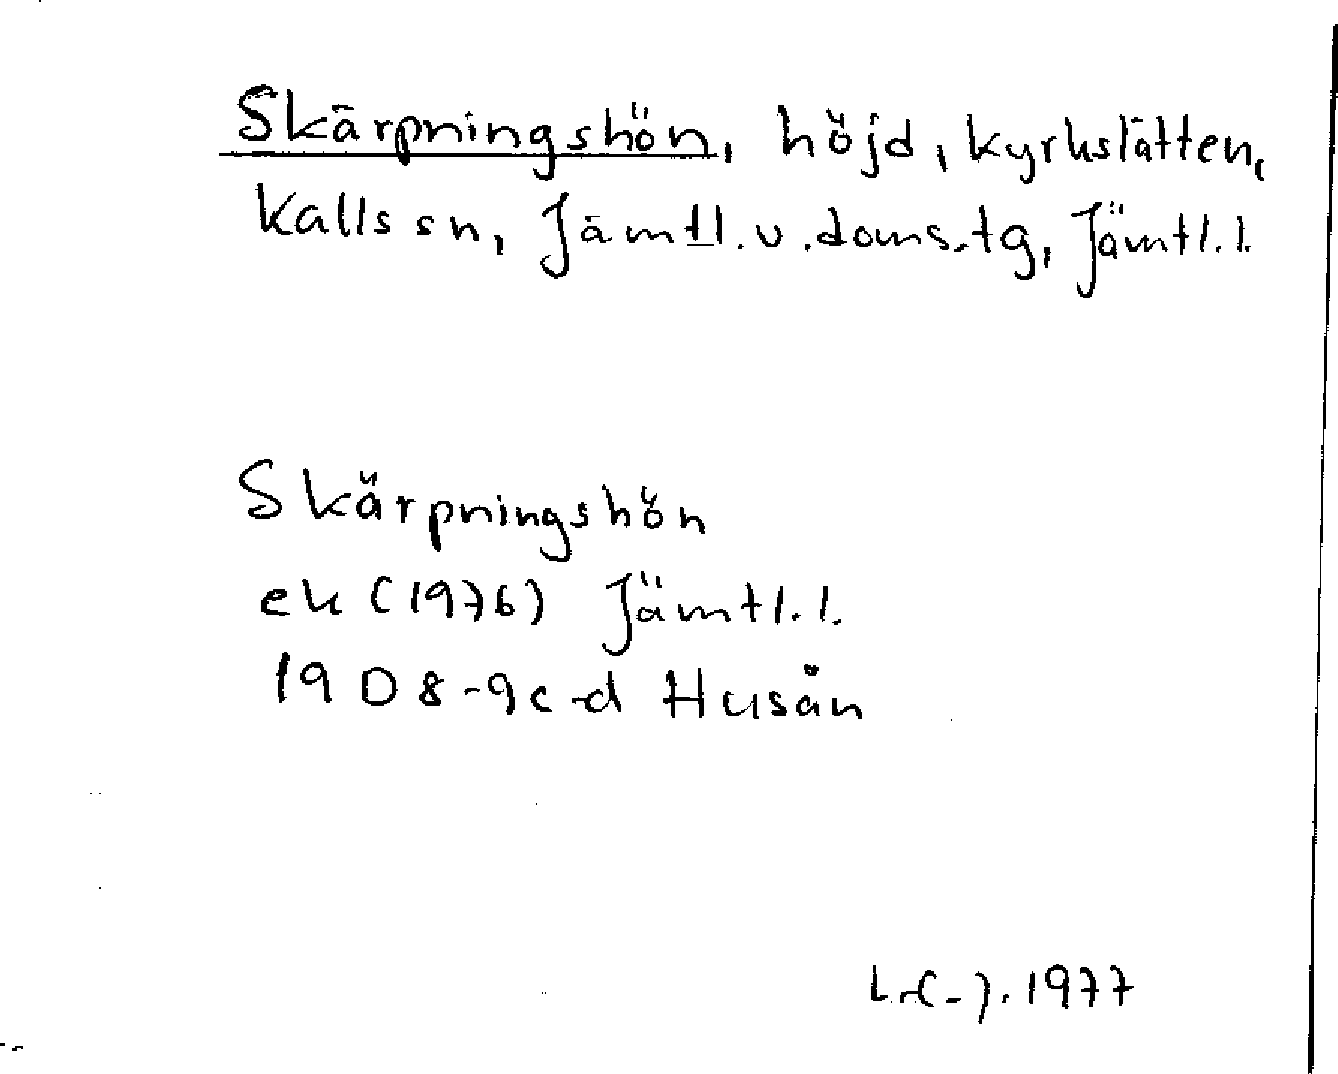 Skärpningshön, höjd, kyrkslätten,
Kalls sn, Jämtl. v. doms.tg, Jämtl. l.
Skärpningshön
ek (1976) Jämtl. l.
19 D 8-9 c-d Husån
1977